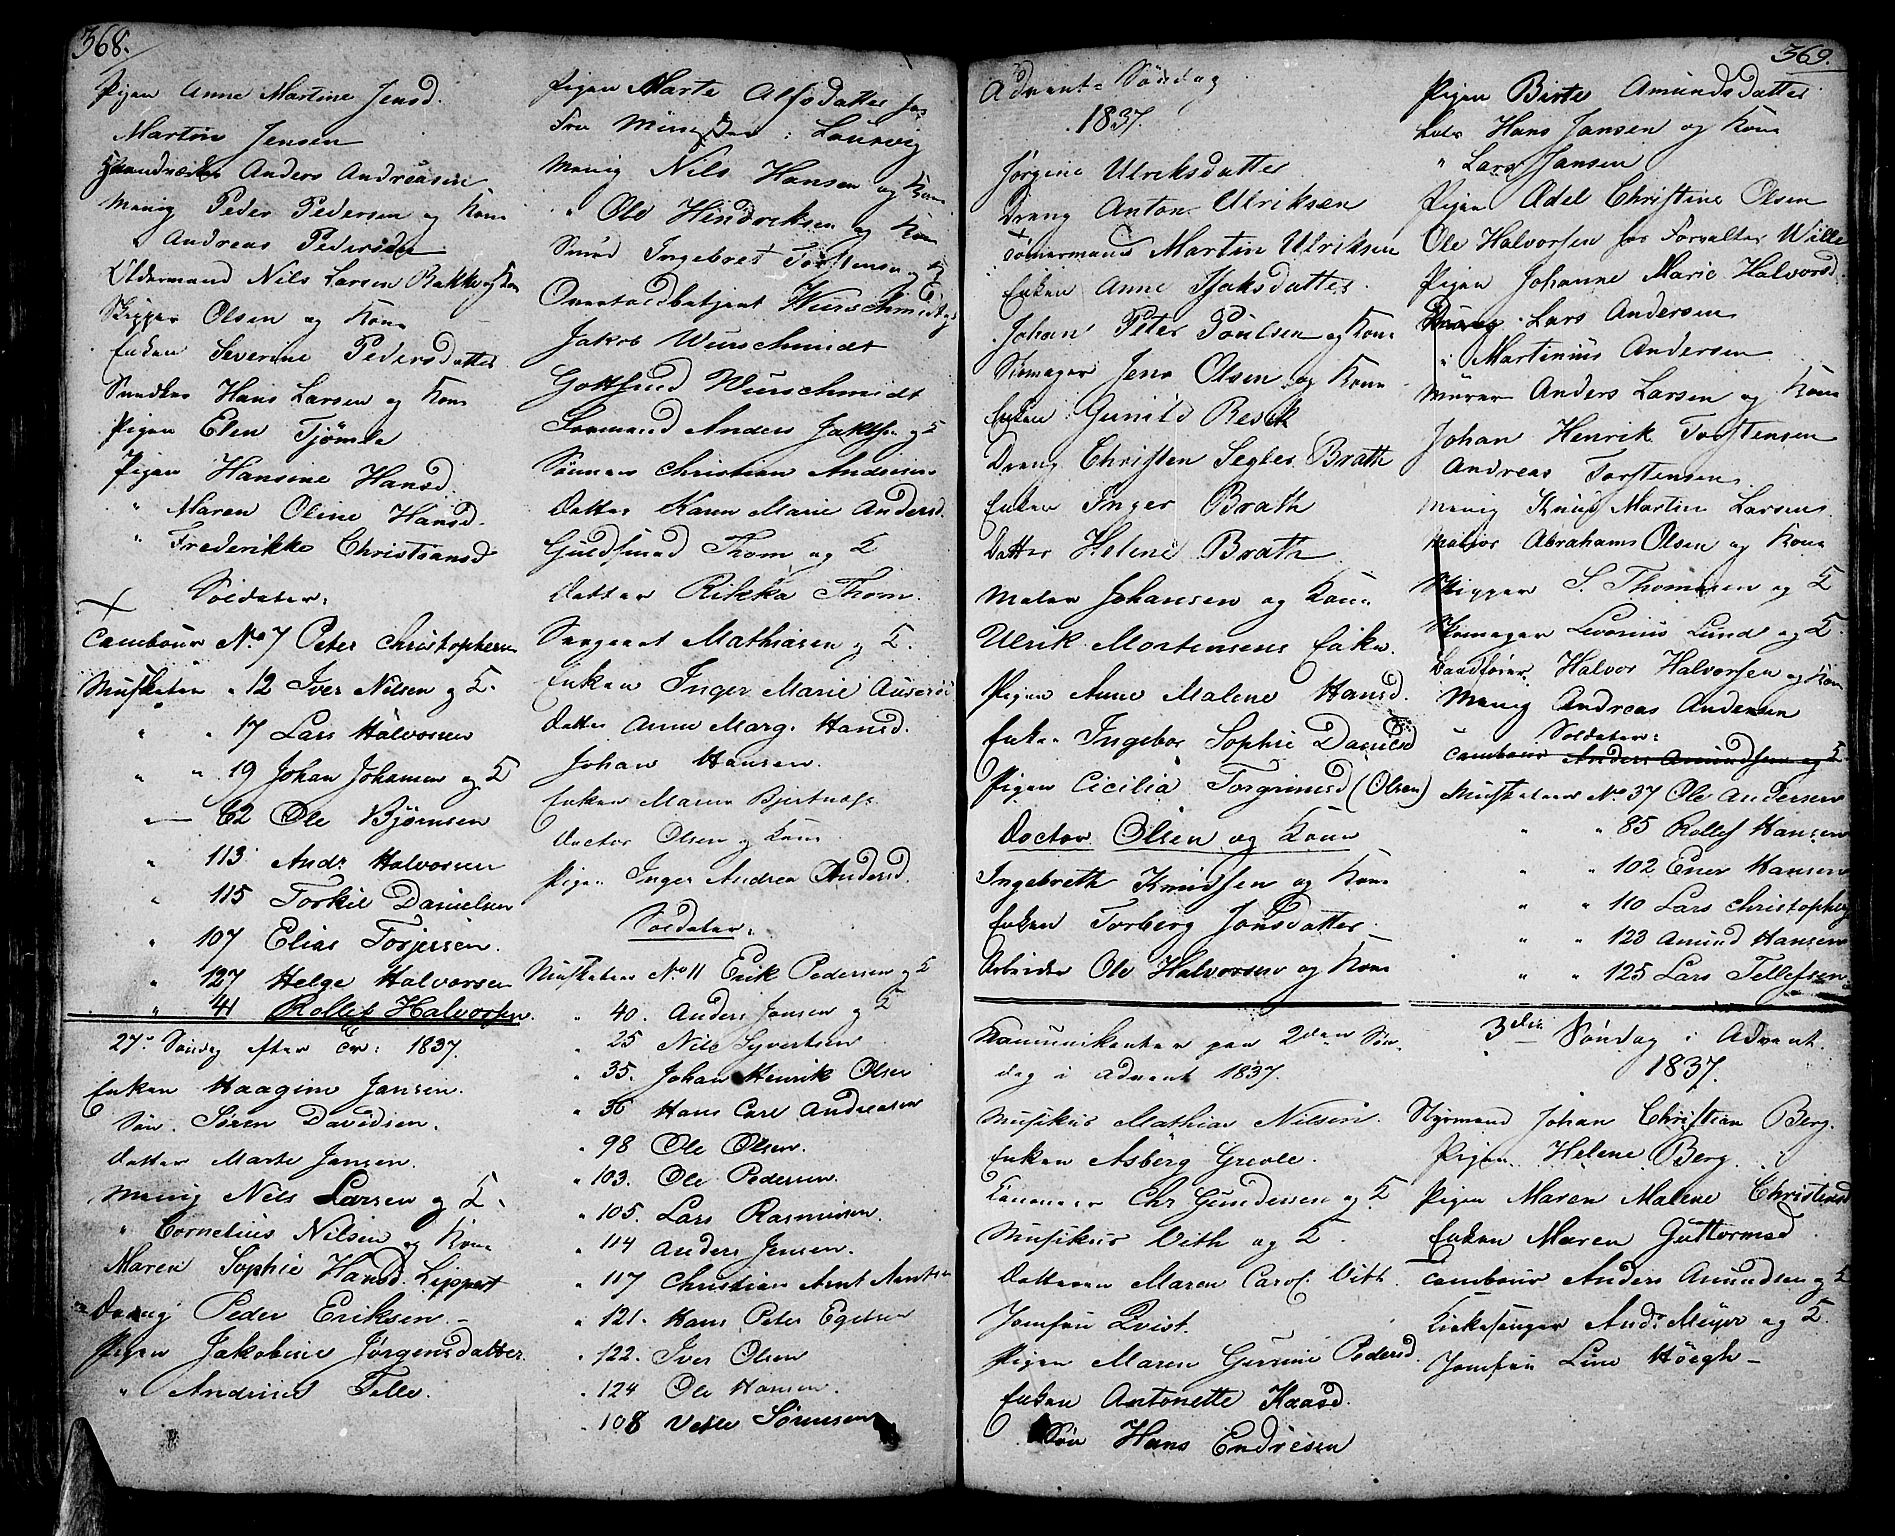 368.
Pigen Anne Martine Jensd.
Martin Jensen
Haandværker Anders Andreasen
Menig Peder Pedersen og Kone
" Andreas Pedersen
Oldermand Nils Larsen Bakke og Kone
Skipper Olsen og Kone
Enken Severine Pedersdatter
Snedker Hans Larsen og Kone
Pigen Elen Tjömle
Pigen Hansine Hansd.
" Maren Oline Hansd.
" Frederikke Christiansd
Soldater:
Tambour No 7 Peter Christophersen
Musketeer " 12 Iver Nilsen og K.
" " 17 Lars Halvorsen
" " 19 Johan Johansen og K
" 62 Ole Bjørnsen
" 113 Andr. Halvorsen
" 115 Torkil Danielsen
" 107 Elias Torjersen.
" 127 Helge Halvorsen
" 41 Rollef Halvorsen.
27de Søndag efter Tr: 1837.
Enken Haagine Jansen.
Søn. Søren Davidsen.
Datter Marte Jansen.
Menig Nils Larsen og K.
" Cornelius Nilsen og Kone
Maren Sophie Hansd. Lippert
Dreng Peder Eriksen.
Pigen Jakobine Jørgensdatter.
" Andrine Telle.
Pigen Marte Alfsdatter
Fra Laurvig
Menig Nils Hansen og Kone
" Ole Hindriksen og Kone
Smed Ingebret Torstensen og K
Overtoldbetjent Wurschmidt og
Jakob Wurschmidt
Gottfried Wurschmidt
Formand Anders Jakobsen og K
Sønnen Christian Andersen
Datter Karen Marie Andersd.
Guldsmed Thom og K
Datter Rikka Thom.
Sergeant Mathiasen og K.
Enken Inger Marie
Datter Anne Marg. Hansd.
Johan Hansen.
Enken Maren
Doctor Olsen og Kone
Pigen Inger Andrea Andersd.
Soldater:
Musketeer No 11 Erik Pedersen og K
" 40. Anders Jansen og K
" 25 Nils Syvertsen
" 35. Johan Henrik Olsen
" 36 Hans Carl Andreasen
" 98 Ole Olsen.
" 103. Ole Pedersen.
" 105. Lars Rasmusen.
" 114 Anders Jensen.
" 117 Christian Arnt Arntsen
" 121. Hans Peter Egelsen
" 122. Iver Olsen
" 124 Ole Hansen.
" 108 Vetle Sørensen
369.
Advents Søndag
1837.
Jørgine Ulriksdatter
Dreng Anton Ulriksen
Tømermand Martin Ulriksen
Enken Anne Isaksdatter.
Johan Peter Poulsen og Kone
Skomager Jens Olsen og Kone
Enken Gunild Resek
Dreng Christen Segler Brath
Enken Inger Brath
Datter Helene Brath
Maler Johansen og Kone
Ulrik Mortensens Enke.
Pigen Anne Malene Hansd.
Enken Ingebor Sophie Danielsd
Pigen Cicilia Torgrimsd (Olsen)
Doctor Olsen og Kone
Ingebreth Knudsen og Kone
Enken Torberg Jonsdatter.
Arbeider Ole Halvorsen og Kone
Komunikanter paa 2den Søn-
dag i Advent 1837.
Musikus Mathias Nilsen.
Enken Asberg Grevle.
Kanoneer Chr Gundersen og K.
Musikus Vith og K.
Datteren Maren Carol. Vith
Jomfru Qvist.
Pigen Maren Gurine Pedersd.
Enken Antonette Haasd.
Søn Hans Endresen
Pigen Birte Amundsdatter
Hans Jansen og Kone
" Lars Jansen
Pigen Adel Christine Olsen
Ole Halvorsen hos Forvalter Wille
Pigen Johanne Marie Halvorsd
Dreng. Lars Andersen
" Martinius Andersen
Murer Anders Larsen og Kone
Johan Henrik Torstensen
Andreas Torstensen.
Menig Knud Martin Larsen.
Matros Abraham Olsen og Kone
Skipper S. Thomesen og K
Skomager Severius Lund og K.
Haandtører Halvor Halvorsen og Kone
Menig Andreas Andersen
Soldater:
Tambour Anders Amundsen og K
Musketeer No 37 Ole Andersen
" " 85 Rollef Hansen
" " 102 Ener Hansen
" " 110 Lars Christophers
" " 123 Amund Hansen
" " 125 Lars Tellefsen
3die Søndag i Advent.
1837.
Styrmand Johan Christian Berg.
Pigen Helene Berg.
Pigen Maren Malene Christensd
Enken Maren Guttormsd.
Tambour Anders Amundsen og K
Kirkesanger Andr. Meyer og K.
Jomfru Line Höegh